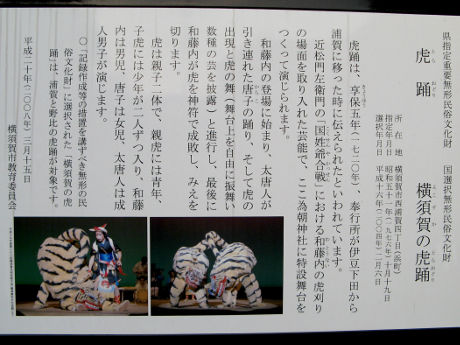 県指定重要無形民俗文化財
虎踊
とら おどり
国選択無形民俗文化財
横須賀の虎踊
所在地 横須賀市西浦賀四丁目(浜町)
指定年月日 昭和五十一年(一九七六年)十月十九日
選択年月日 平成十六年(二〇〇四年)二月六日
虎踊は、享保五年(一七二〇年)、奉行所が伊豆下田から
浦賀に移った時に伝えられたといわれています。
近松門左衛門の「国姓爺合戦」における和藤内の虎刈り
の場面を取り入れた芸能で、ここ為朝神社に特設舞台を
つくって演じられます。
和藤内の登場に始まり、太唐人が
引き連れた唐子の踊り、そして虎の
出現と虎の舞(舞台上を自由に振舞い
数種の芸を披露)と進行し、最後に
和藤内が虎を神符で成敗し、みえを
切ります。
虎は親子二体で、親虎には青年、
子虎には少年が二人ずつ入り、和藤
内は男児、唐子は女児、太唐人は成
人男子が演じます。
〇「記録作成等の措置を講ずべき無形の民
俗文化財」に選択された「横須賀の虎
踊」は、浦賀と野比の虎踊が対象です。
平成二十年(二〇〇八年)三月十五日
横須賀市教育委員会